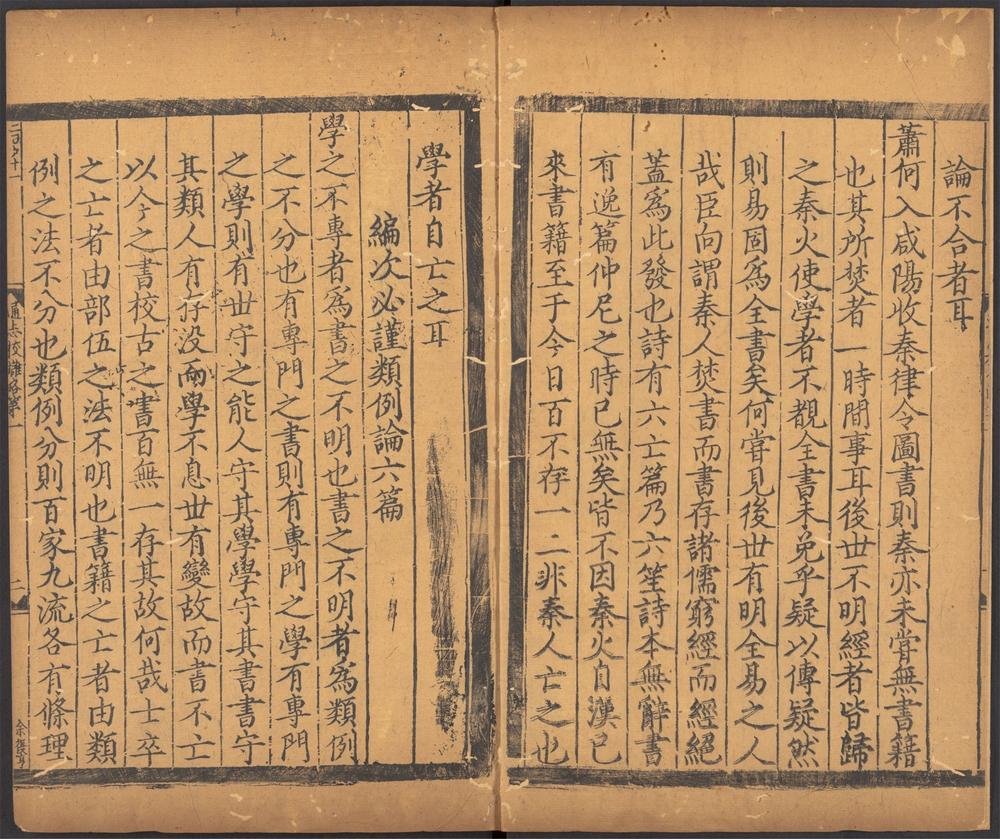 論不合者耳
蕭何入咸陽收秦律令圖書則秦亦未嘗無書籍
也其所焚者一時間事耳後世不明經者皆歸
之秦火使學者不覩全書未免乎疑以傳疑然
則易固爲全書矣何嘗見後世有明全易之人
哉臣向謂秦人焚書而書存諸儒窮經而經絕
蓋爲此發也詩有六亡篇乃六笙詩本無辭書
有逸篇仲尼之時已無矣皆不因秦火自漢已
來書籍至于今日百不存一二非秦人亡之也
學者自亡之耳
編次必謹類例論六篇
學之不專者爲書之不明也書之不明者爲類例
之不分也有專門之書則有專門之學有專門
之學則有世守之能人守其學學守其書書守
其類人有存没而學不息世有變故而書不亡
以今之書校古之書百無一存其故何哉士卒
之亡者由部伍之法不明也書籍之亡者由類
例之法不分也類例分則百家九流各有條理
通志校讎略第一
二